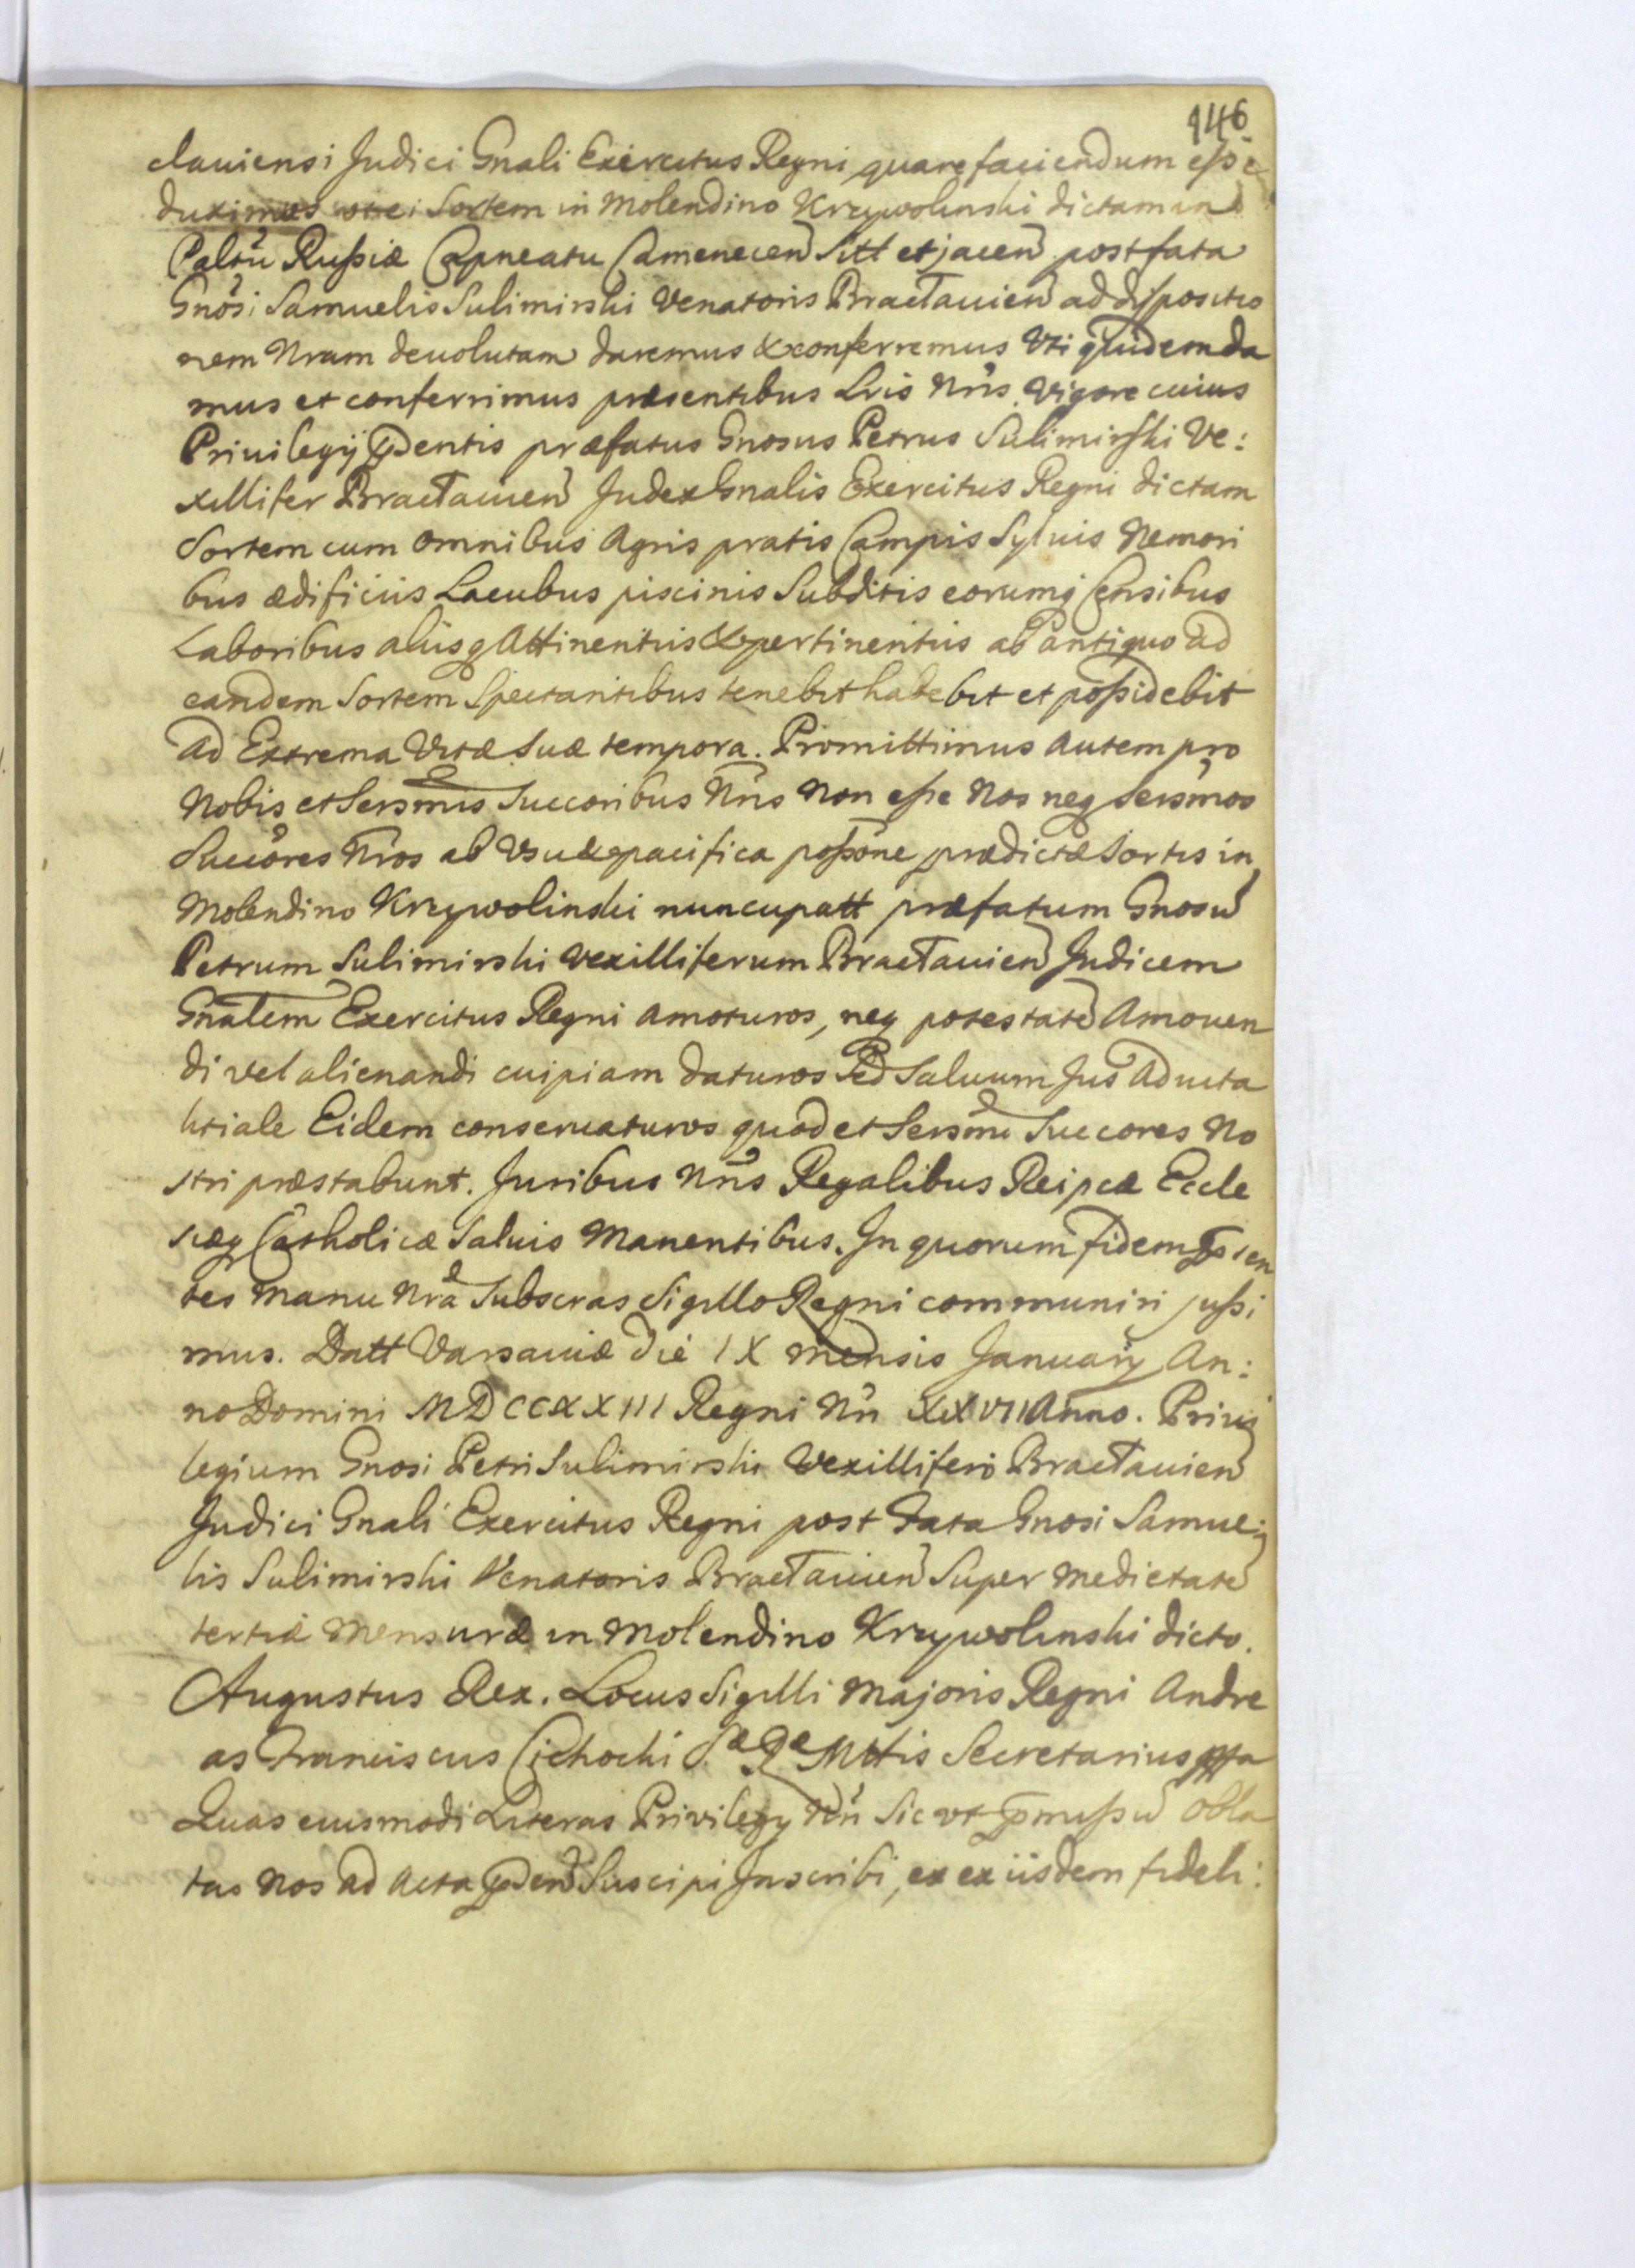 146
clauiensi Judici Gnali Exercitus Regni quare faciendum esse
duximus Sortem in Molendino Krzywolinski dictam in
Paltu Russiæ Capneatu Camenecen Sitt et jacen post fata
Gnosi Samuelis Sulimirski Venatoris Braclauien ad dispositio
nem Nram deuolutam daremus & conferremus Vti quidem da
mus et conferrimus præsentibus Lris Nris. Vigore cuius
Priuilegij pdentis præfatus Gnosus Petrus Sulimirski Ve:
xillifer Braclauien Judex Gnalis Exercitus Regni dictam
Sortem cum omnibus Agris pratis Campis Syluis Nemori
bus ædificiis Lacubus piscinis Subditis eorumq Censibus
Laboribus aliisq Attinentiis & pertinentiis ab antiquo ad
eandem Sortem Spectantibus tenebit habebit et possidebit
ad Extrema Vitæ Suæ tempora. Promittimus autem pro
Nobis et Sersmis Succoribus Nris Non esse Nos neq Sersmos
Succores Nros ab Vsu & pacifica possone prædictæ Sortis in
Molendino Krzywolinski nuncupatt præfatum Gnosu
Petrum Sulimirski Vexilliferum Braclauien Judicem
Gnalem Exercitus Regni amoturos, neq potestate Amouen
di vel alienandi cuipiam daturos Sed Saluum Jus aduita
litiale Eidem conseruaturos quod et Sersmi Succores No
stri præstabunt. Juribus Nris Regalibus Reipcæ Eccle
siæq Catholicæ Saluis Manentibus. In quorum fidem præsen
tes Manu Nra Subscras Sigillo Regni communiri jussi
mus. Datt Varsauiæ die IX Mensis Januarij An:
no Domini MDCCXXIII Regni Nri XXVII Anno. Priui
legium Gnosi Petri Sulimirski Vexilliferi Braclauien
Judici Gnali Exercitus Regni post Fata Gnosi Samue:
lis Sulimirski Venatoris Braclauien Super Medietate
tertiæ Mensuræ in Molendino Krzywolinski dicto.
Augustus Rex. Locus Sigilli Majoris Regni Andre
as Franciscus Cichocki S. Ræ Mttis Secretarius
Quas eiusmodi Literas Privilegy Nri Sic vt pmissu obla
tas Nos ad Acta pden Suscipi Inscribi, ex ex iisdem fideli: